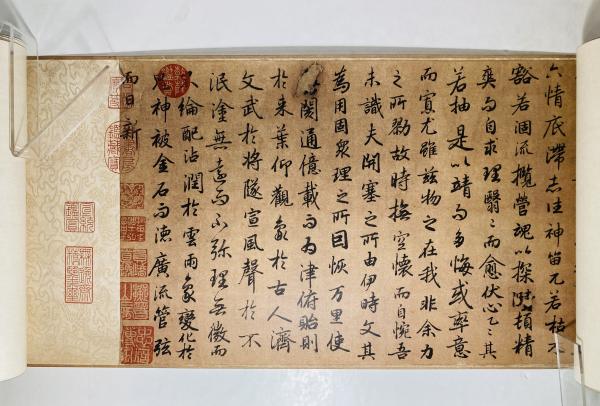 六情底滯志往神留兀若枯木
豁若涸流攬營魂以探賾頓精
爽而自求理翳翳而愈伏思乙乙其
若抽是以靖而多悔或率意
而寡尤雖茲物之在我非余力
之所勠故時撫空懷而自惋吾
未識夫開塞之所由伊時文其
為用固衆理之所因恢万里使
無閡通億載而為津俯貽則
於来葉仰觀象於古人濟
文武於将隧宣風聲於不
泯塗無遠而不弥理無微而
不綸配沾潤於雲雨象變化於
鬼神被金石而徳廣流管弦
而日新